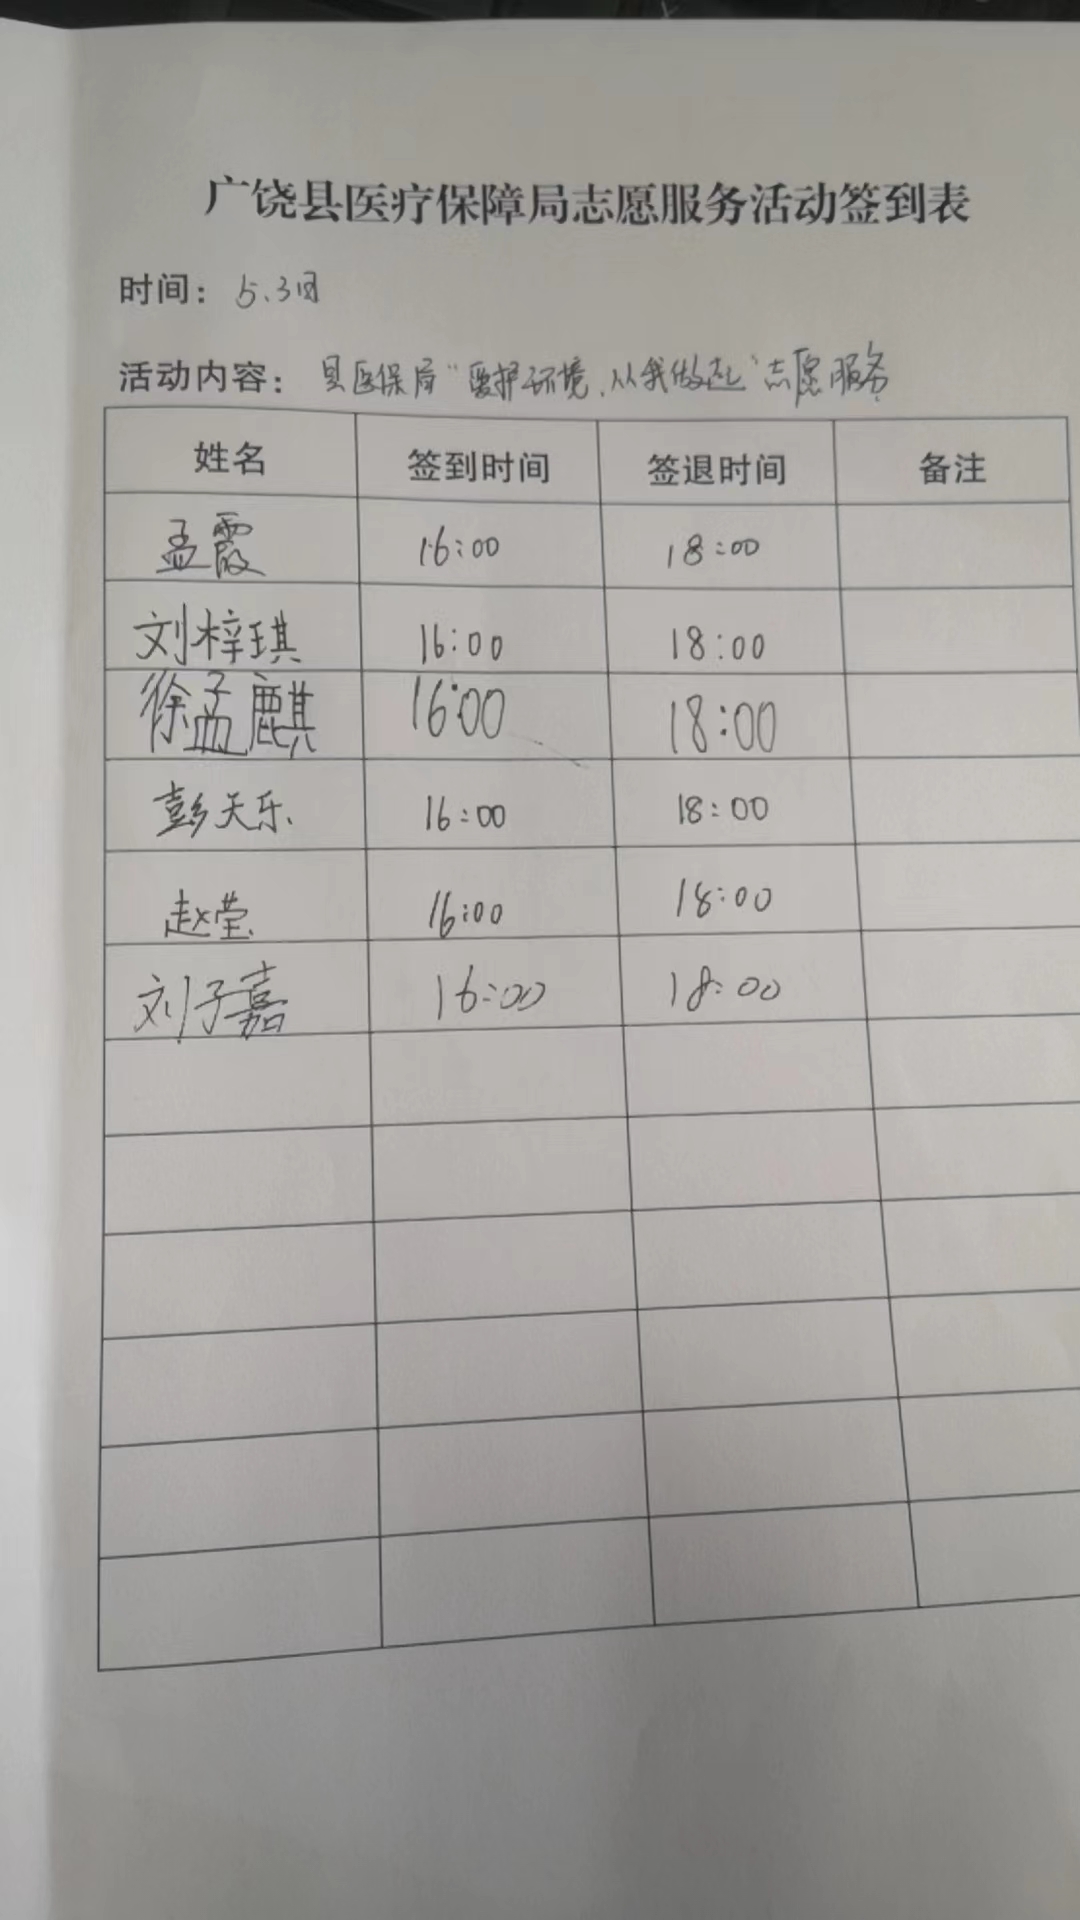 广饶县医疗保障局志愿服务活动签到表
时间：5.3日
活动内容：县医保局“爱护环境、从我做起”志愿服务
姓名 签到时间 签退时间 备注
孟霞 16:00 18:00
刘梓琪 16:00 18:00
徐孟麒 16:00 18:00
彭天乐 16:00 18:00
赵莹 16:00 18:00
刘子嘉 16:00 18:00